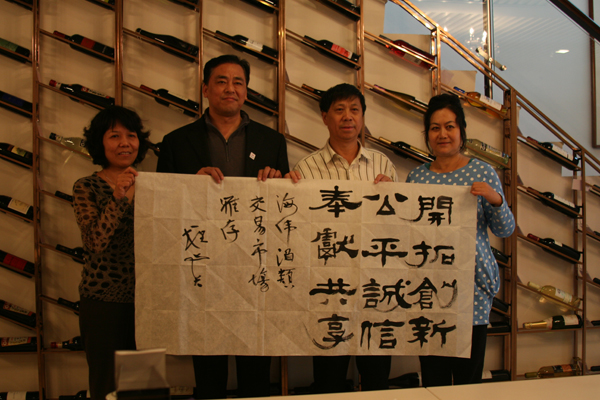 開拓創新
公平誠信
奉獻共享
海伟酒類
交易市場
雅存